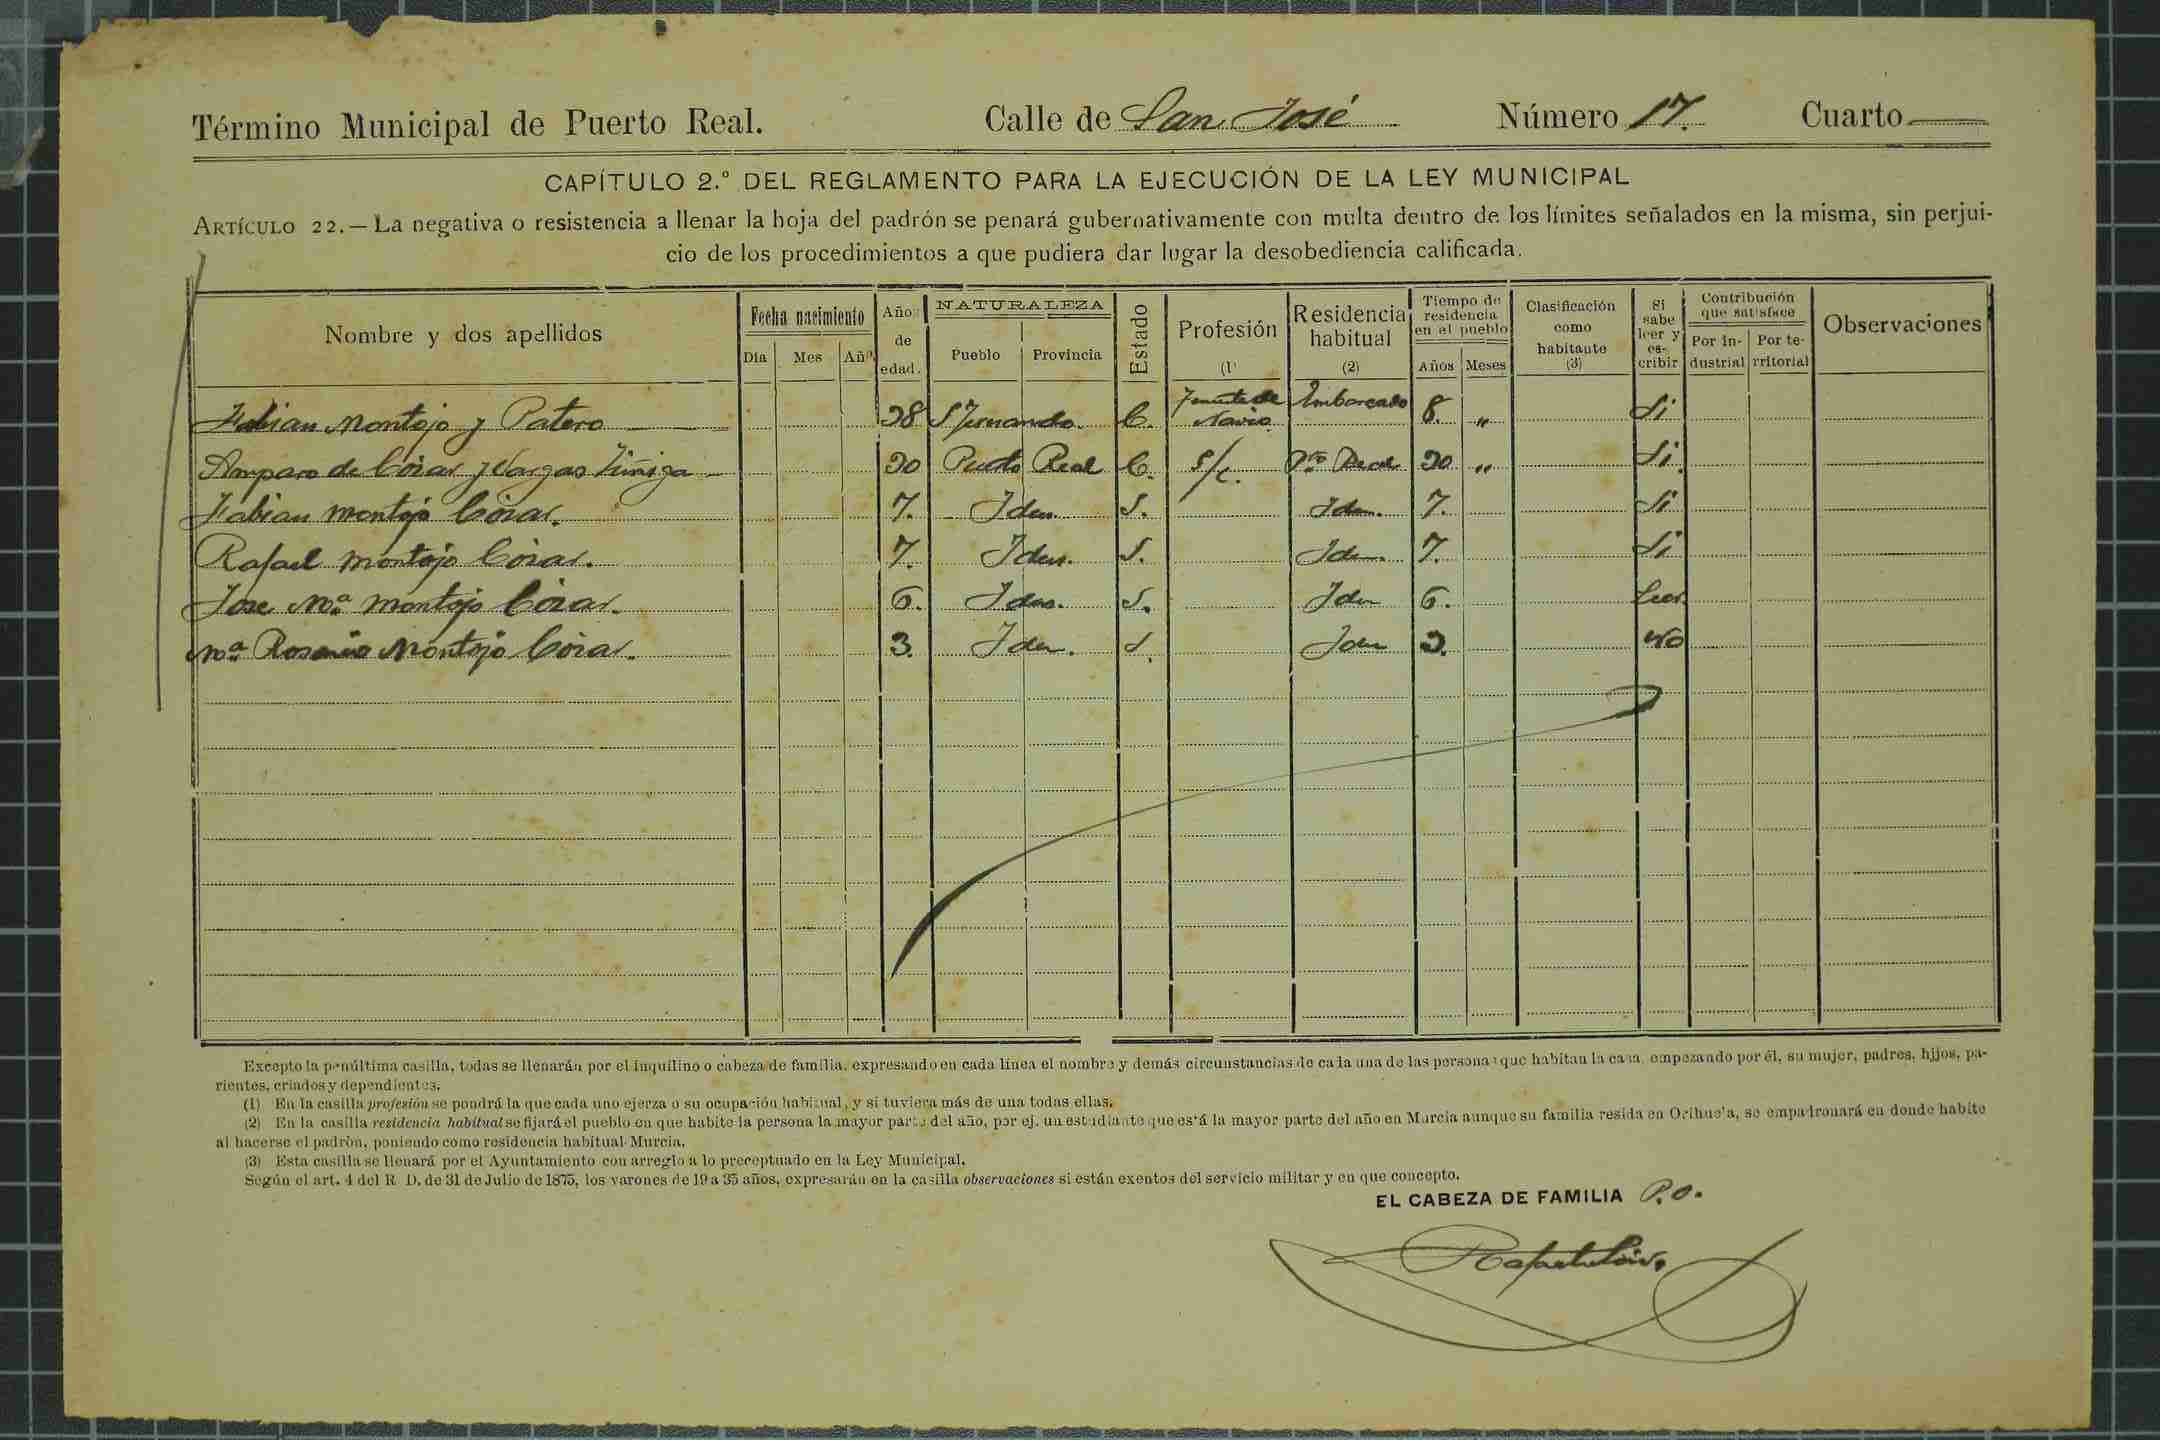 Término Municipal de Puerto Real. Calle de San José Número 17. Cuarto
CAPÍTULO 2.º DEL REGLAMENTO PARA LA EJECUCIÓN DE LA LEY MUNICIPAL
ARTÍCULO 22.—La negativa o resistencia a llenar la hoja del padrón se penará gubernativamente con multa dentro de los límites señalados en la misma, sin perjui-
cio de los procedimientos a que pudiera dar lugar la desobediencia calificada.
Nombre y dos apellidos Fecha nacimiento Día Mes Año Años de edad. NATURALEZA Pueblo Provincia Estado Profesión (1) Residencia habitual (2) Tiempo de residencia en el pueblo Años Meses Clasificación como habitante (3) Si sabe leer y es- cribir Contribución que satisface Por in- dustrial Por te- rritorial Observaciones
Fabian Montojo y Patero 38 S Fernando C. Teniente de Navio Embarcado 8. " Si
Amparo de Cózar y Vargas Zúñiga 30 Puerto Real C. S/c. Pto Real 30 " Si.
Fabian Montojo Cózar. 7. Idem. S. Idem. 7. Si
Rafael Montojo Cózar. 7. Idem. S. Idem. 7. Si
Jose Mª Montojo Cózar. 6. Idem. S. Idem 6. Leer
Mª Rosario Montojo Cózar. 3. Idem. S. Idem 3. No
Excepto la penúltima casilla, todas se llenarán por el inquilino o cabeza de familia, expresando en cada línea el nombre y demás circunstancias de cada una de las personas que habitan la casa, empezando por él, su mujer, padres, hijos, pa-
rientes, criados y dependientes.
(1) En la casilla profesión se pondrá la que cada uno ejerza o su ocupación habitual, y si tuviera más de una todas ellas.
(2) En la casilla residencia habitual se fijará el pueblo en que habite la persona la mayor parte del año, por ej. un estudiante que está la mayor parte del año en Murcia aunque su familia resida en Orihuela, se empadronará en donde habite
al hacerse el padrón, poniendo como residencia habitual Murcia.
(3) Esta casilla se llenará por el Ayuntamiento con arreglo a lo preceptuado en la Ley Municipal.
Según el art. 4 del R. D. de 31 de Julio de 1875, los varones de 19 a 35 años, expresarán en la casilla observaciones si están exentos del servicio militar y en que concepto.
EL CABEZA DE FAMILIA P.O.
Rafael Cózar